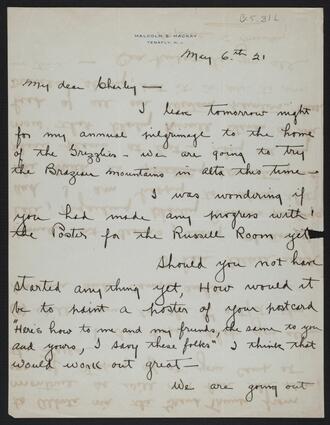 G.5.316
MALCOLM S. MACKAY
TENAFLY, N. J.
May 6.th 21
My dear Charley —
I leave tomorrow night
for my annual pilgrimage to the home
of the Grizzlies — we are going to try
the Brazeau mountains in Alta this time —
I was wondering if
you had made any progress with
the Poster for the Russell Room yet
Should you not have
started anything yet, How would it
be to paint a poster of your postcard
"Here's how to me and my friends, the same to you
and yours, I savy these folks" I think that
would work out great —
We are going out